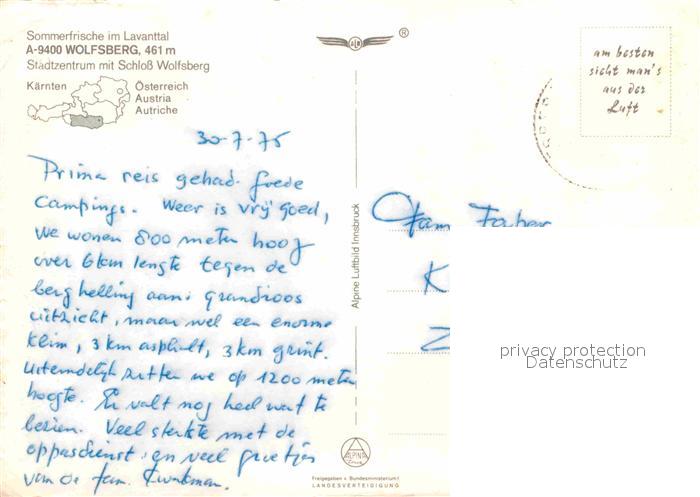 Sommerfrische im Lavanttal
A-9400 WOLFSBERG, 461 m
Stadtzentrum mit Schloß Wolfsberg
Kärnten
Österreich
Austria
Autriche
®
am besten
sieht man's
aus der
Luft
30-7-75
Prima reis gehad. Goede
Campings. Weer is vrij goed,
We wonen 800 meter hoog
over 6 km lengte tegen de
berghelling aan: grandioos
uitzicht, maar wel een enorme
klim, 3 km asphalt, 3 km grint.
Uiteindelijk zitten we op 1200 meter
hoogte. Er valt nog heel wat te
bezien. Veel sterkte met de
oppasdienst en veel groetjes
van de fam.
Alpine Luftbild Innsbruck
Fam.
K
Z
privacy protection
Datenschutz
ALPINA
Freigegeben v. Bundesministerium f.
LANDESVERTEIDIGUNG